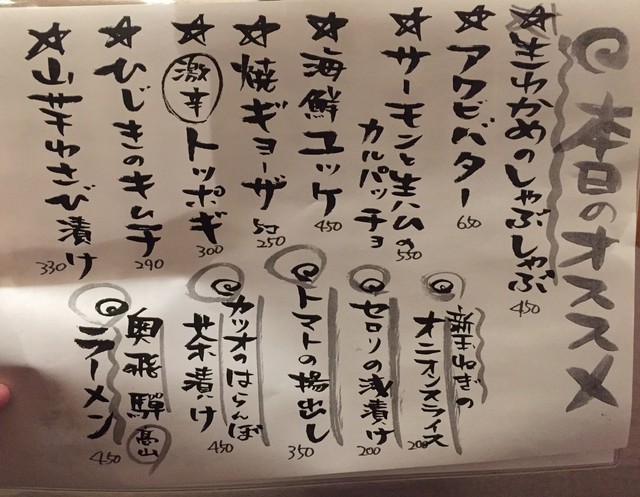 本日のオススメ
生わかめのしゃぶしゃぶ
450
アワビバター
650
サーモンと生ハムの
カルパッチョ
550
海鮮ユッケ
450
焼ギョーザ
5コ
250
激辛トッポギ
300
ひじきのキムチ
290
山芋わさび漬け
330
新玉ねぎの
オニオンスライス
200
セロリの浅漬け
200
トマトの揚出し
350
カツオのはらんぼ
茶漬け
450
奥飛騨高山
ラーメン
450